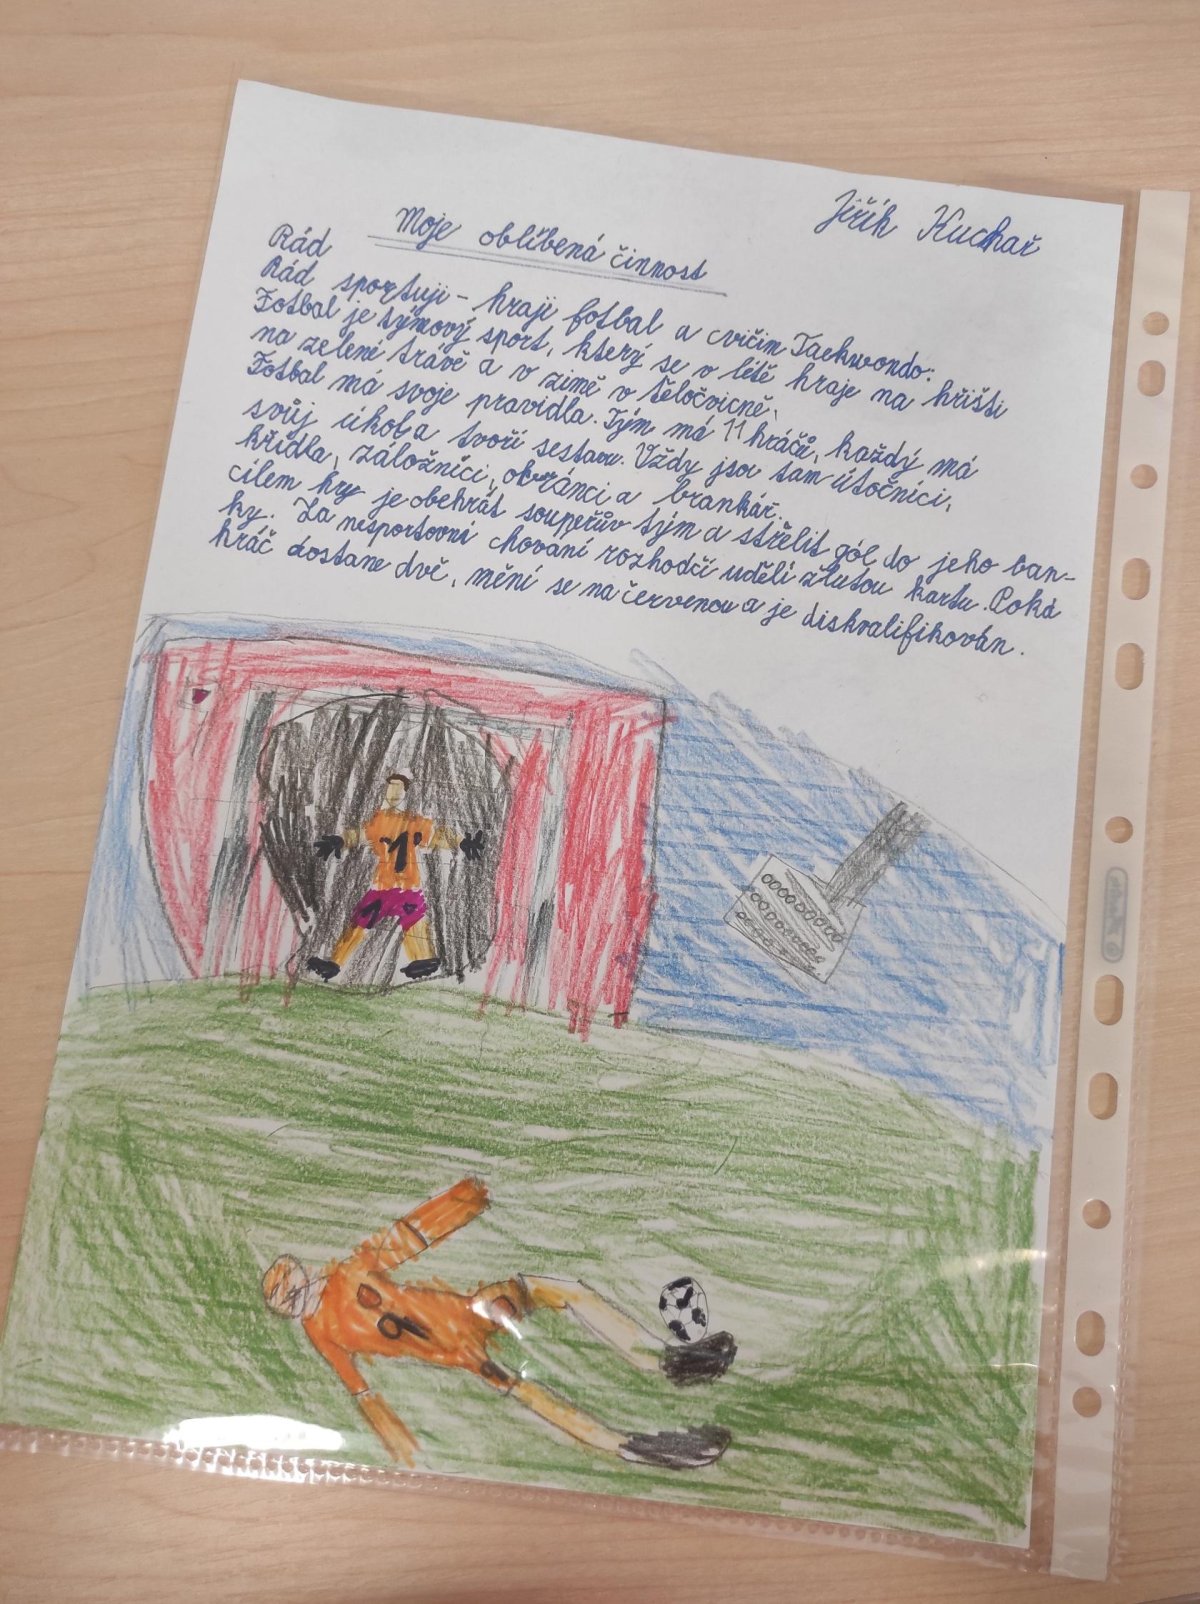 Jiřík Kuchař
Moje oblíbená činnost
Rád
Rád sportuji - hraji fotbal a cvičim Taekwondo.
Fotbal je týmový sport, který se v létě hraje na hřišti
na zelené trávě a v zimě v těločvicně.
Fotbal má svoje pravidla. Tým má 11 hráčů, každý má
svůj úkol a tvoří sestavu. Vždy jsou tam útočníci,
křídla, záložníci, obránci a brankář.
cílem hry je obehrát soupeřův tým a střelit gól do jeho ban-
ky. Za nesportovní chování rozhodčí uděli žlutou kartu. Poká
hráč dostane dvě, mění se na červenou a je diskvalifikován.
1
1
9